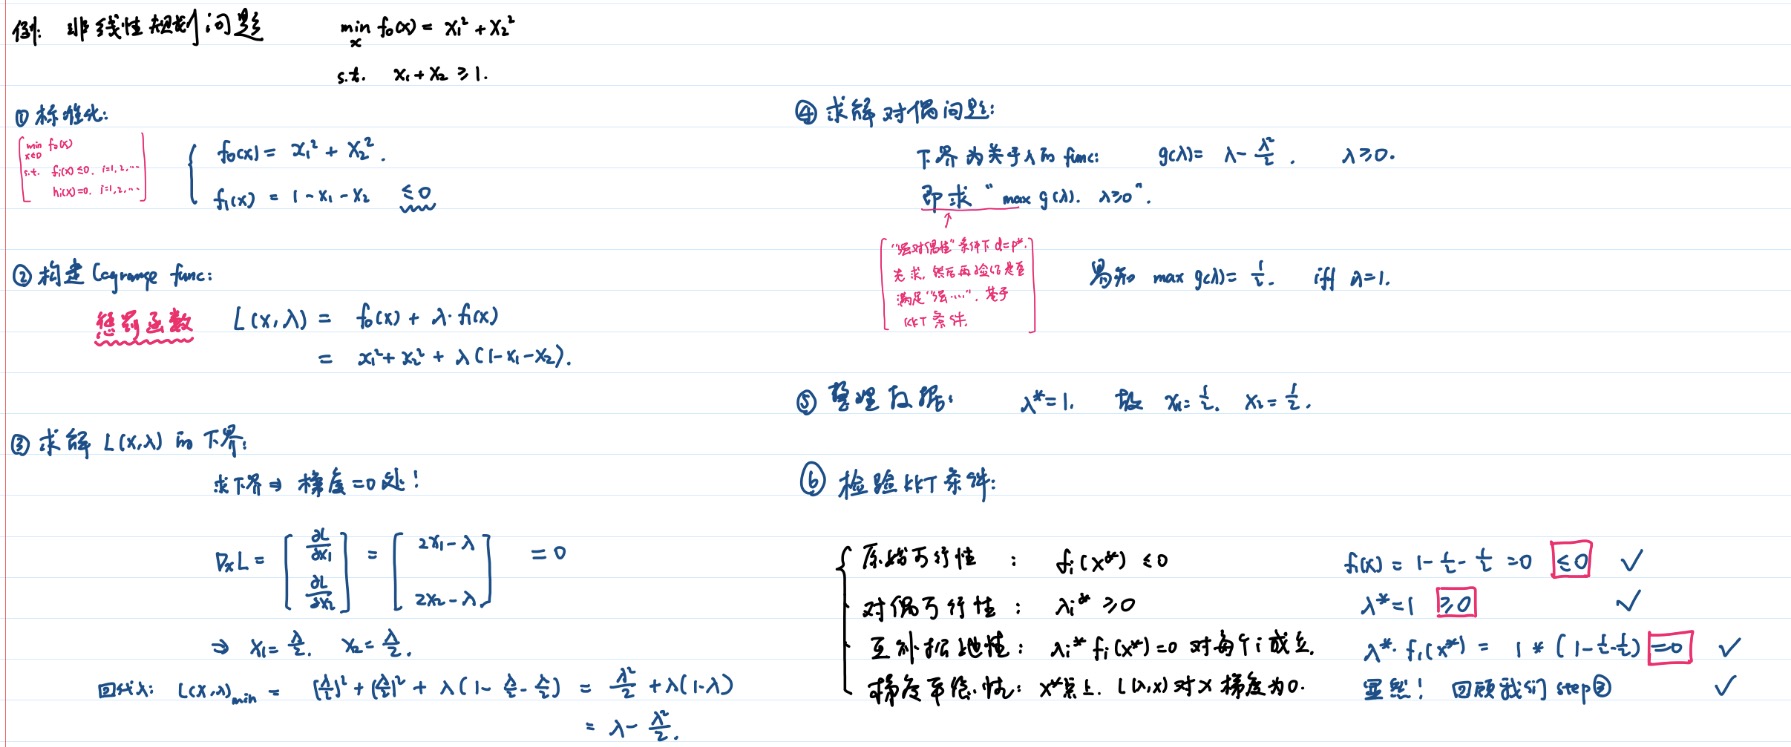 例: 非线性规划问题
min f₀(x) = x₁² + x₂²
x
s.t. x₁ + x₂ ≥ 1.
① 标准化:
min f₀(x)
x∈D
s.t. fᵢ(x) ≤ 0, i=1,2,...
hᵢ(x) = 0. i=1,2,...
f₀(x) = x₁² + x₂².
f₁(x) = 1 - x₁ - x₂ ≤ 0
② 构造 Lagrange func:
惩罚函数 L(x,λ) = f₀(x) + λ·f₁(x)
= x₁² + x₂² + λ(1-x₁-x₂).
③ 求解 L(x,λ) 的下界:
求下界 ⇒ 梯度=0处!
∇ₓL = [∂L/∂x₁ ∂L/∂x₂] = [2x₁-λ 2x₂-λ] = 0
⇒ x₁ = λ/2. x₂ = λ/2.
回代入: L(x,λ)min = (λ/2)² + (λ/2)² + λ(1 - λ/2 - λ/2) = λ²/2 + λ(1-λ)
= λ - λ²/2.
④ 求解对偶问题:
下界为关于λ的func: g(λ) = λ - λ²/2. λ≥0.
即求 "max g(λ). λ≥0".
"强对偶性"条件下 d=p*.
先求, 然后再验证是否
满足"强...". 基于
KKT条件.
易知 max g(λ) = 1/2. iff λ=1.
⑤ 整理数据: λ*=1. 故 x₁=1/2. x₂=1/2.
⑥ 检验KKT条件:
原始可行性: fᵢ(x*) ≤ 0 f₁(x) = 1 - 1/2 - 1/2 = 0 ≤0 ✓
对偶可行性: λᵢ* ≥ 0 λ*=1 ≥0 ✓
互补松弛性: λᵢ* fᵢ(x*)=0 对每个i成立. λ*·f₁(x*) = 1 * (1-1/2-1/2) =0 ✓
梯度平稳性: x*点上. L(λ,x)对x梯度为0. 显然! 回顾我们step③ ✓